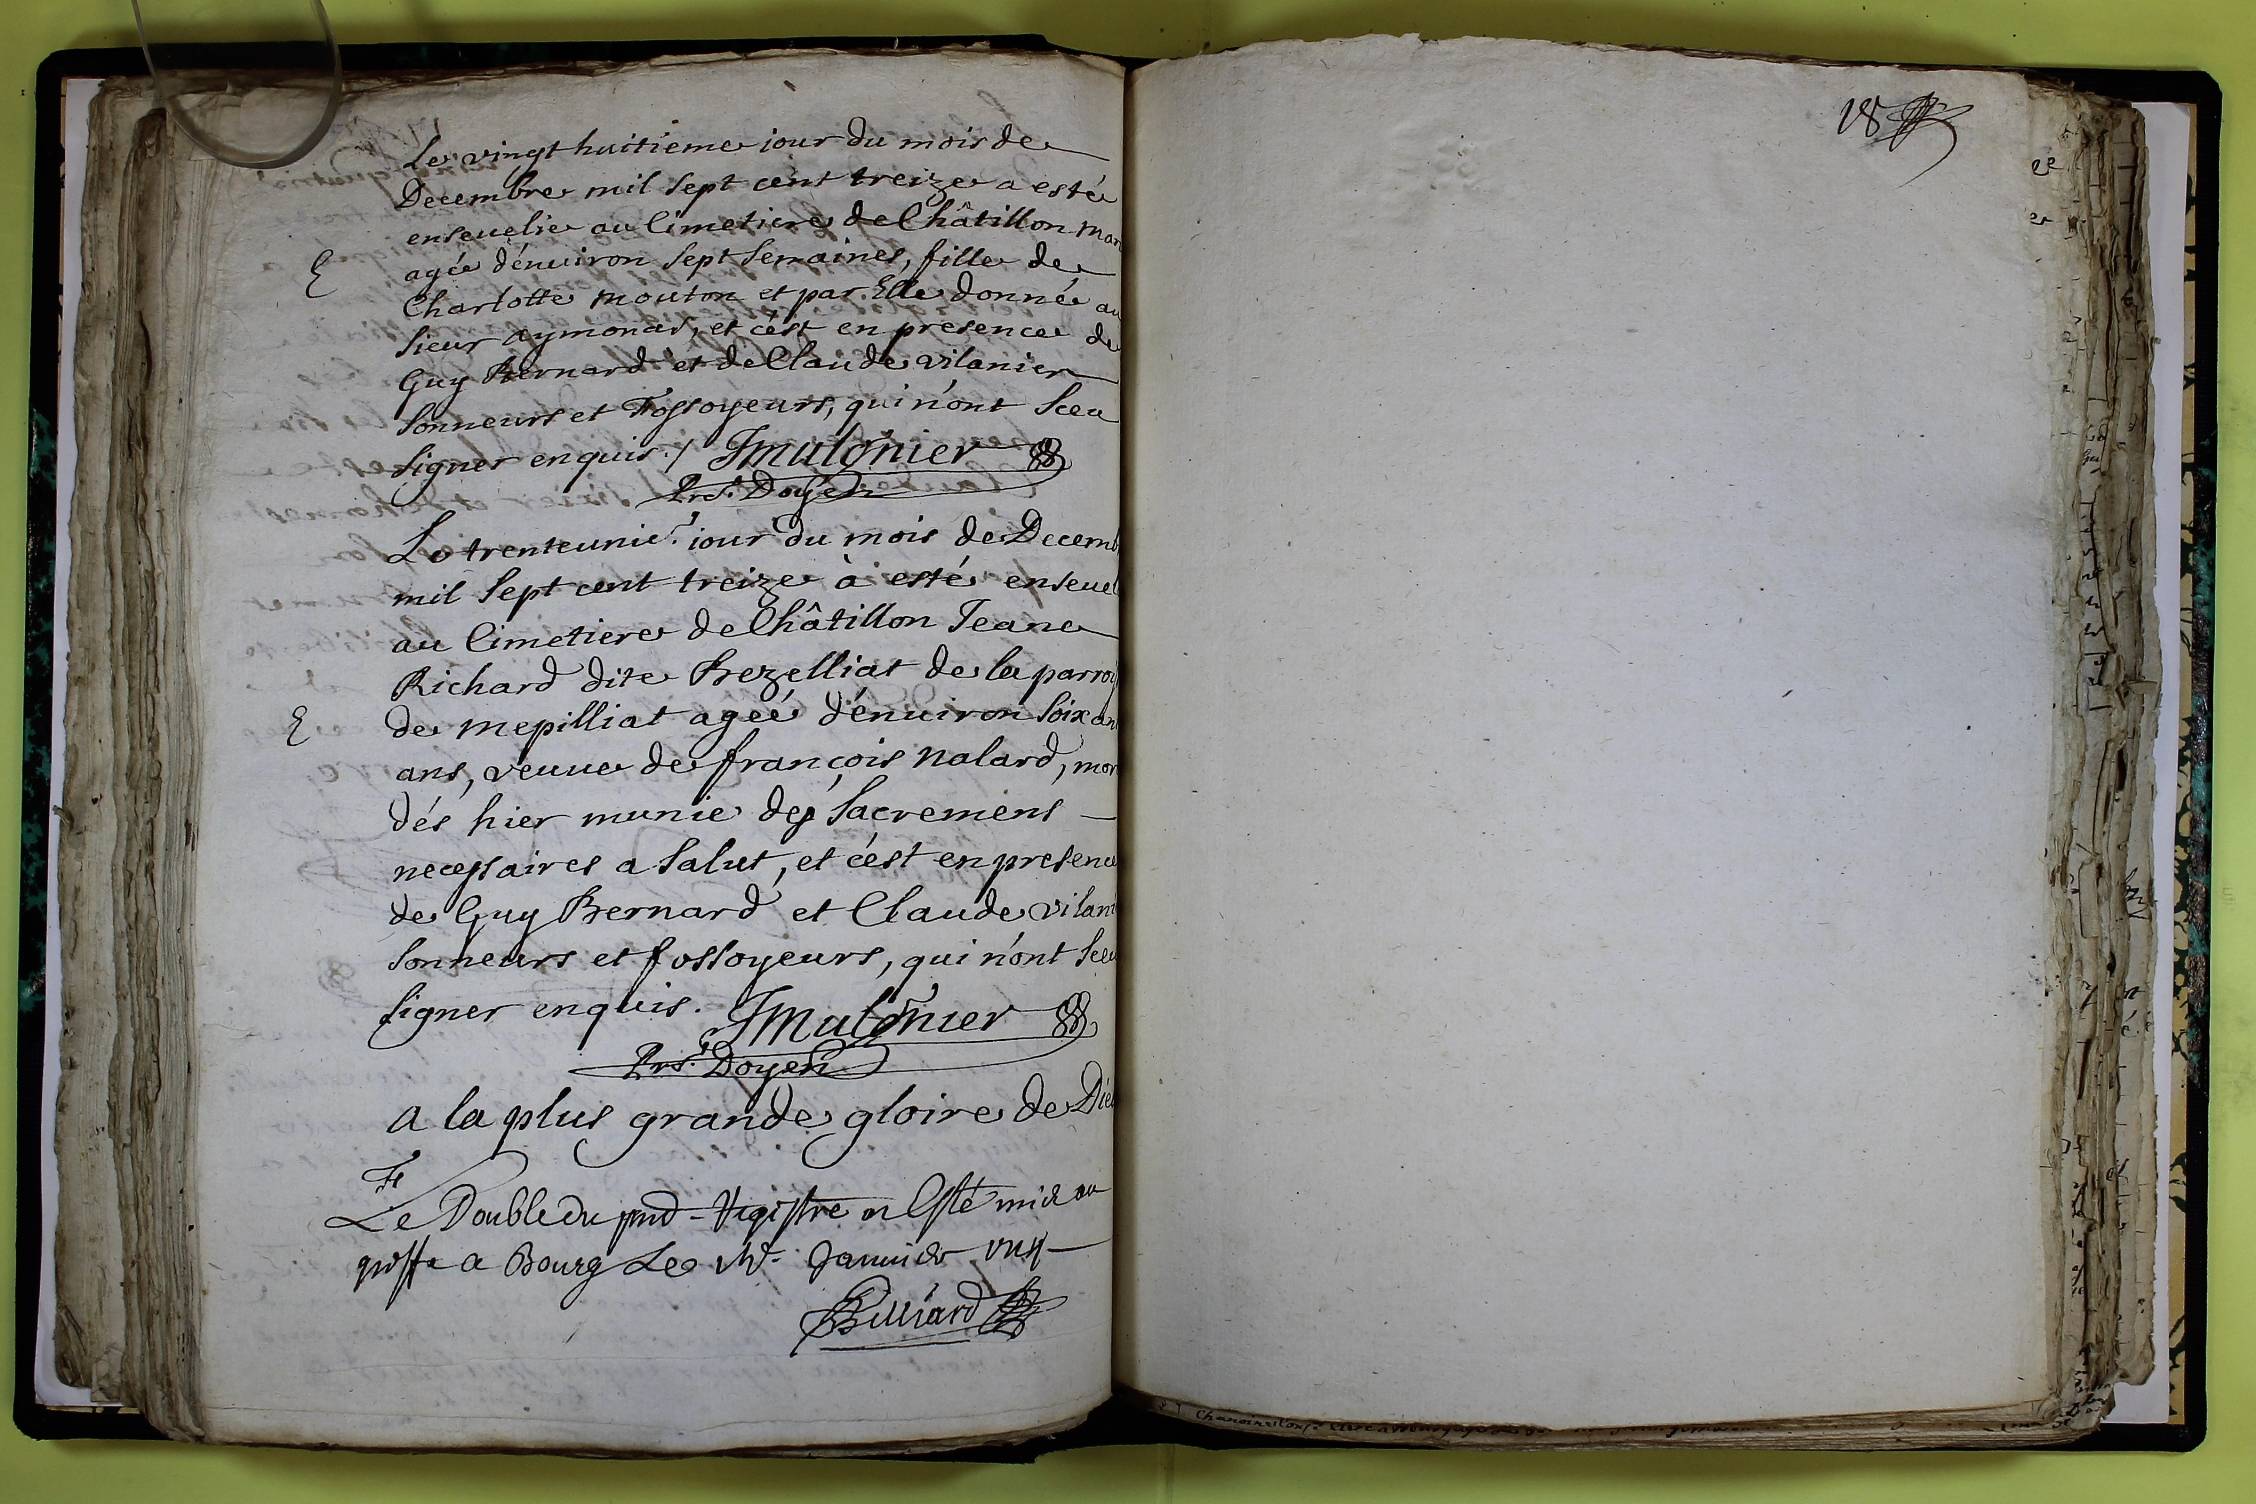 Le vingt huitieme iour du mois de
Decembre mil sept cent treize a esté
enseuelie au Cimetiere de Châtillon Mar
agée d'enuiron sept semaines, fille de
Charlotte Mouton et par Elle donnée au
sieur aymonas, et c'est en presence de
Guy Bernard et de Claude vilanier
sonneurs et Fossoyeurs, qui n'ont sceu
signer enquis./ JMulonier
Prs. Doyen
Le trenteunie. iour du mois de Decemb
mil sept cent treize à esté enseuel
au Cimetiere de Châtillon Jeane
Richard dite Bezelliat de la parroi
E de Mepilliat ageé d'enuiron soixan
ans, veuue de françois Nalard, mor
dés hier munie des sacremens
necessaires a salut, et c'est en presence
de Guy Bernard et Claude vilani
sonneurs et fossoyeurs, qui n'ont sceu
signer enquis. JMulonier
Prs. Doyen
A la plus grande gloire de Dieu
Le Double du pnt Registre a Esté mis au
greffe a Bourg Le Janvier
Billiard